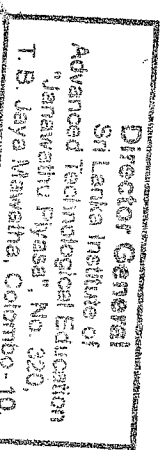 Director General
Sri Lanka Institute of
Advanced Technological Education
"Janawathu Piyasa", No. 320,
T. B. Jaya Mawatha, Colombo - 10